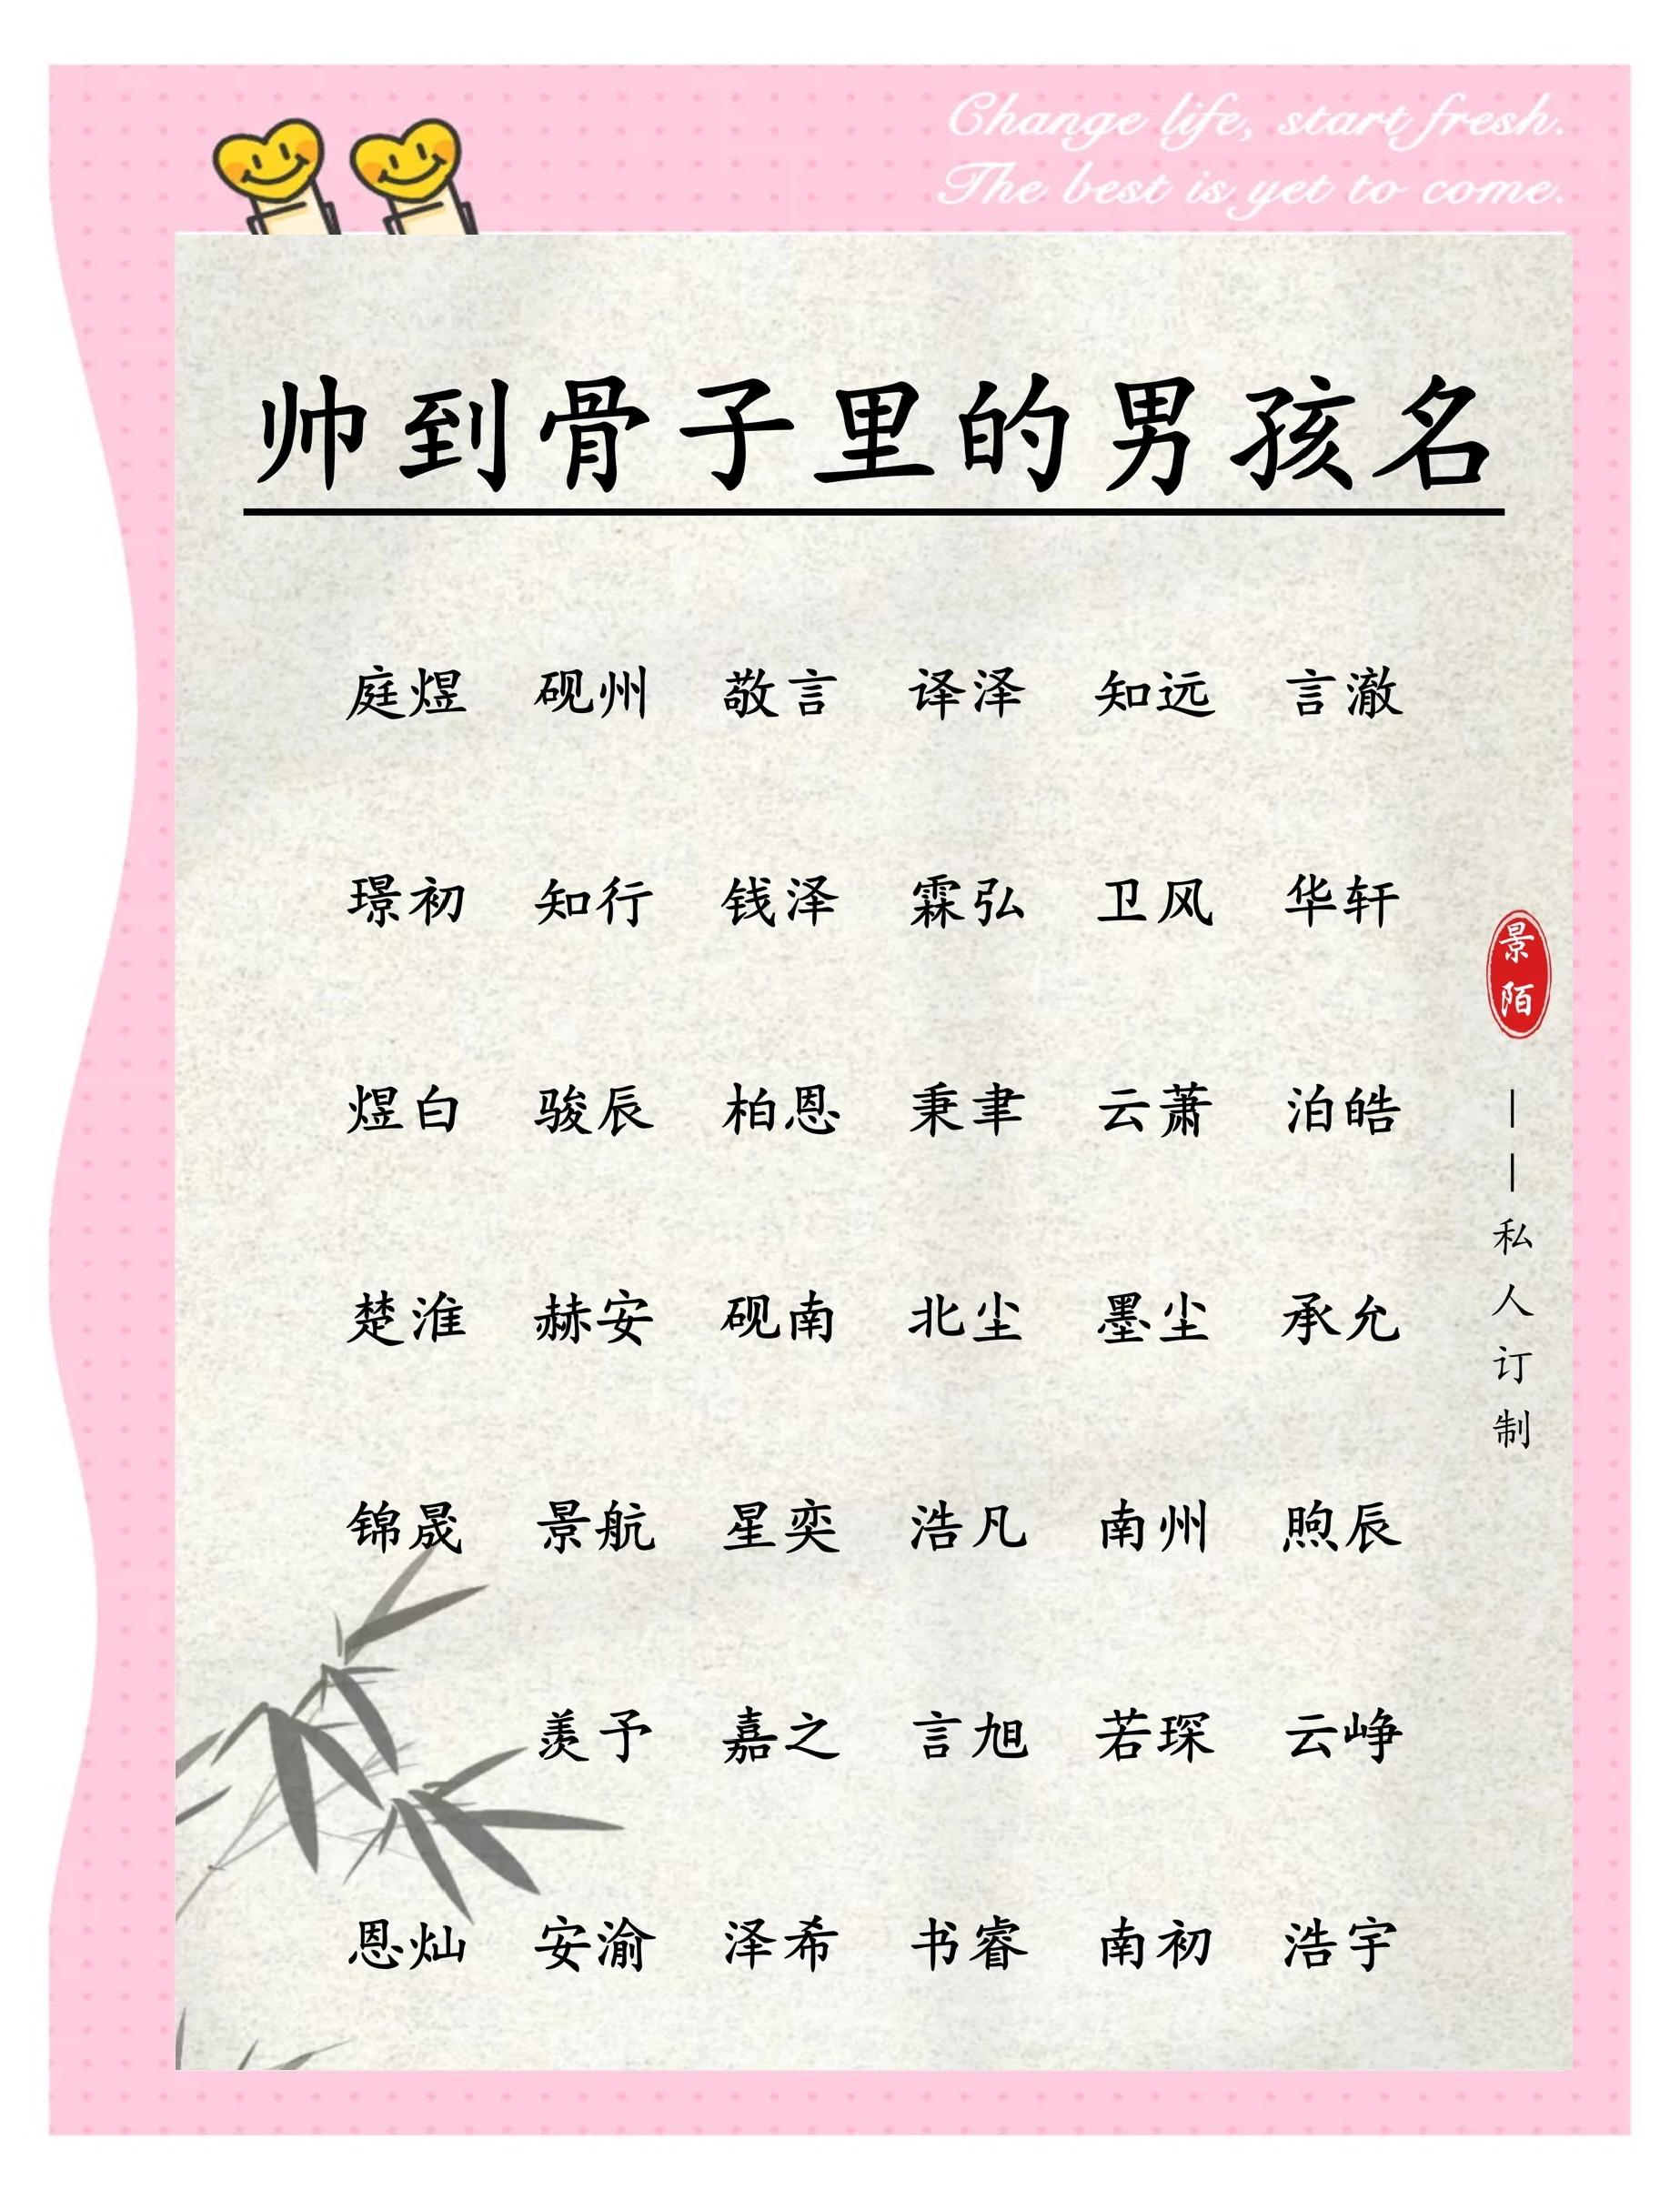 Change life, start fresh.
The best is yet to come.
帅到骨子里的男孩名
庭煜 砚州 敬言 译泽 知远 言澈
璟初 知行 钱泽 霖弘 卫风 华轩
煜白 骏辰 柏恩 秉聿 云萧 泊皓
楚淮 赫安 砚南 北尘 墨尘 承允
锦晟 景航 星奕 浩凡 南州 煦辰
羡予 嘉之 言旭 若琛 云峥
恩灿 安渝 泽希 书睿 南初 浩宇
景陌
——私人订制